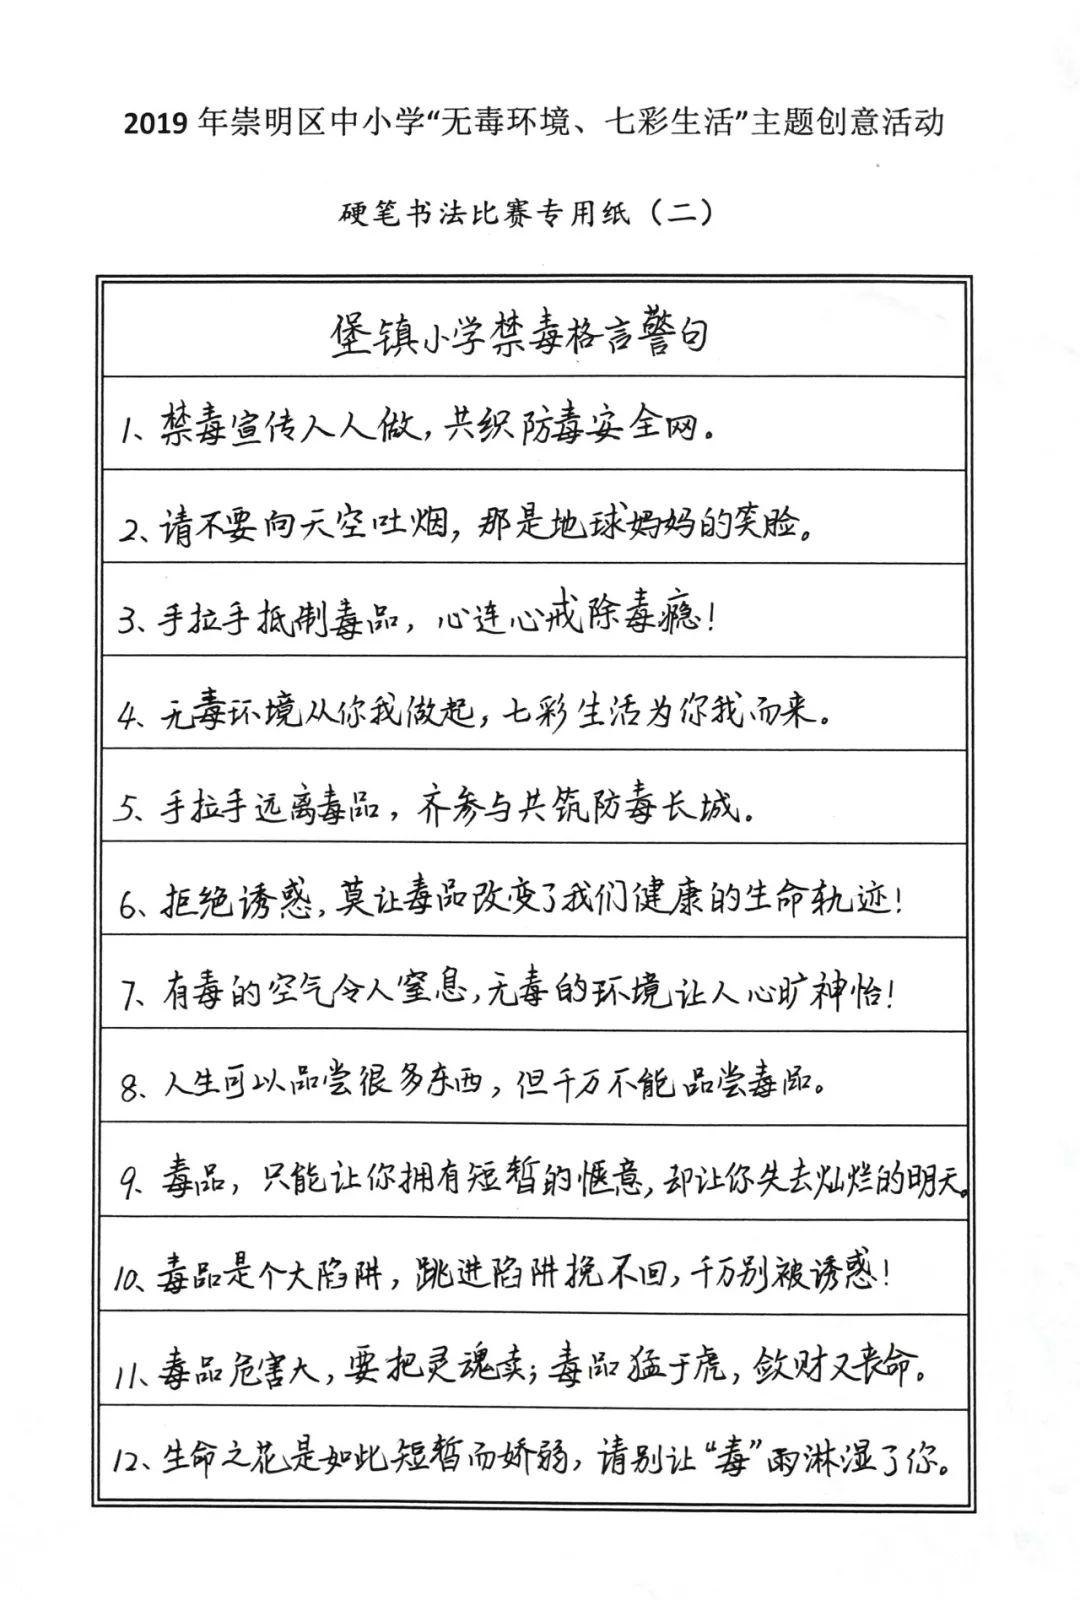 2019 年崇明区中小学“无毒环境、七彩生活”主题创意活动
硬笔书法比赛专用纸（二）
堡镇小学禁毒格言警句
1、禁毒宣传人人做，共织防毒安全网。
2、请不要向天空吐烟，那是地球妈妈的笑脸。
3、手拉手抵制毒品，心连心戒除毒瘾！
4、无毒环境从你我做起，七彩生活为你我而来。
5、手拉手远离毒品，齐参与共筑防毒长城。
6、拒绝诱惑，莫让毒品改变了我们健康的生命轨迹！
7、有毒的空气令人窒息，无毒的环境让人心旷神怡！
8、人生可以品尝很多东西，但千万不能品尝毒品。
9、毒品，只能让你拥有短暂的惬意，却让你失去灿烂的明天。
10、毒品是个大陷阱，跳进陷阱挽不回，千万别被诱惑！
11、毒品危害大，要把灵魂卖；毒品猛于虎，敛财又丧命。
12、生命之花是如此短暂而娇弱，请别让“毒”雨淋湿了你。